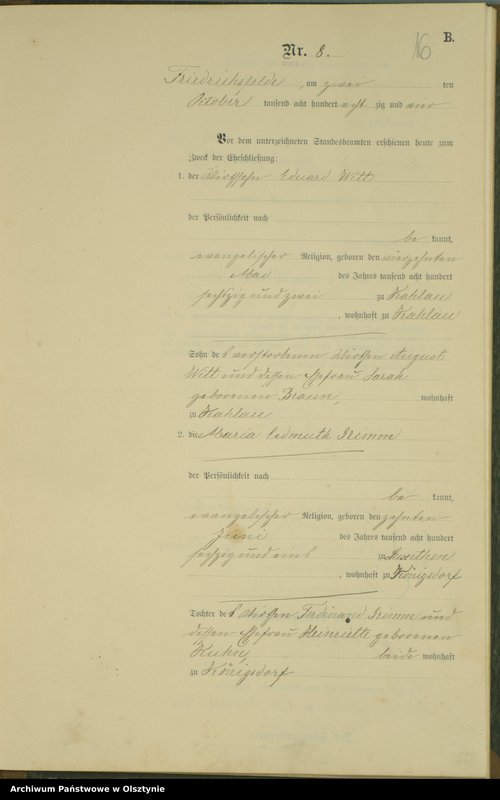 16 B.
Nr. 8.
Friedrichsfelde, am zwei ten
October tausend acht hundert acht zig und vier
Vor dem unterzeichneten Standesbeamten erschienen heute zum
Zweck der Eheschließung:
1. der Wirthssohn Eduard Witt
der Persönlichkeit nach
be kannt,
evangelischer Religion, geboren den vierzehnten
Mai des Jahres tausend acht hundert
sechszig und zwei zu Kahlau
, wohnhaft zu Kahlau
Sohn des verstorbenen Wirthen August
Witt und dessen Ehefrau Sarah
geborenen Braun, wohnhaft
zu Kahlau
2. die Maria Grimm
der Persönlichkeit nach
be kannt,
evangelischer Religion, geboren den zehnten
Juni des Jahres tausend acht hundert
sechzig und eins zu
, wohnhaft zu Königsdorf
Tochter des Wirthen Ferdinand Grimm und
dessen Ehefrau Heinriette geborenen
Kuhn, beide wohnhaft
zu Königsdorf
Archiwum Państwowe w Olsztynie